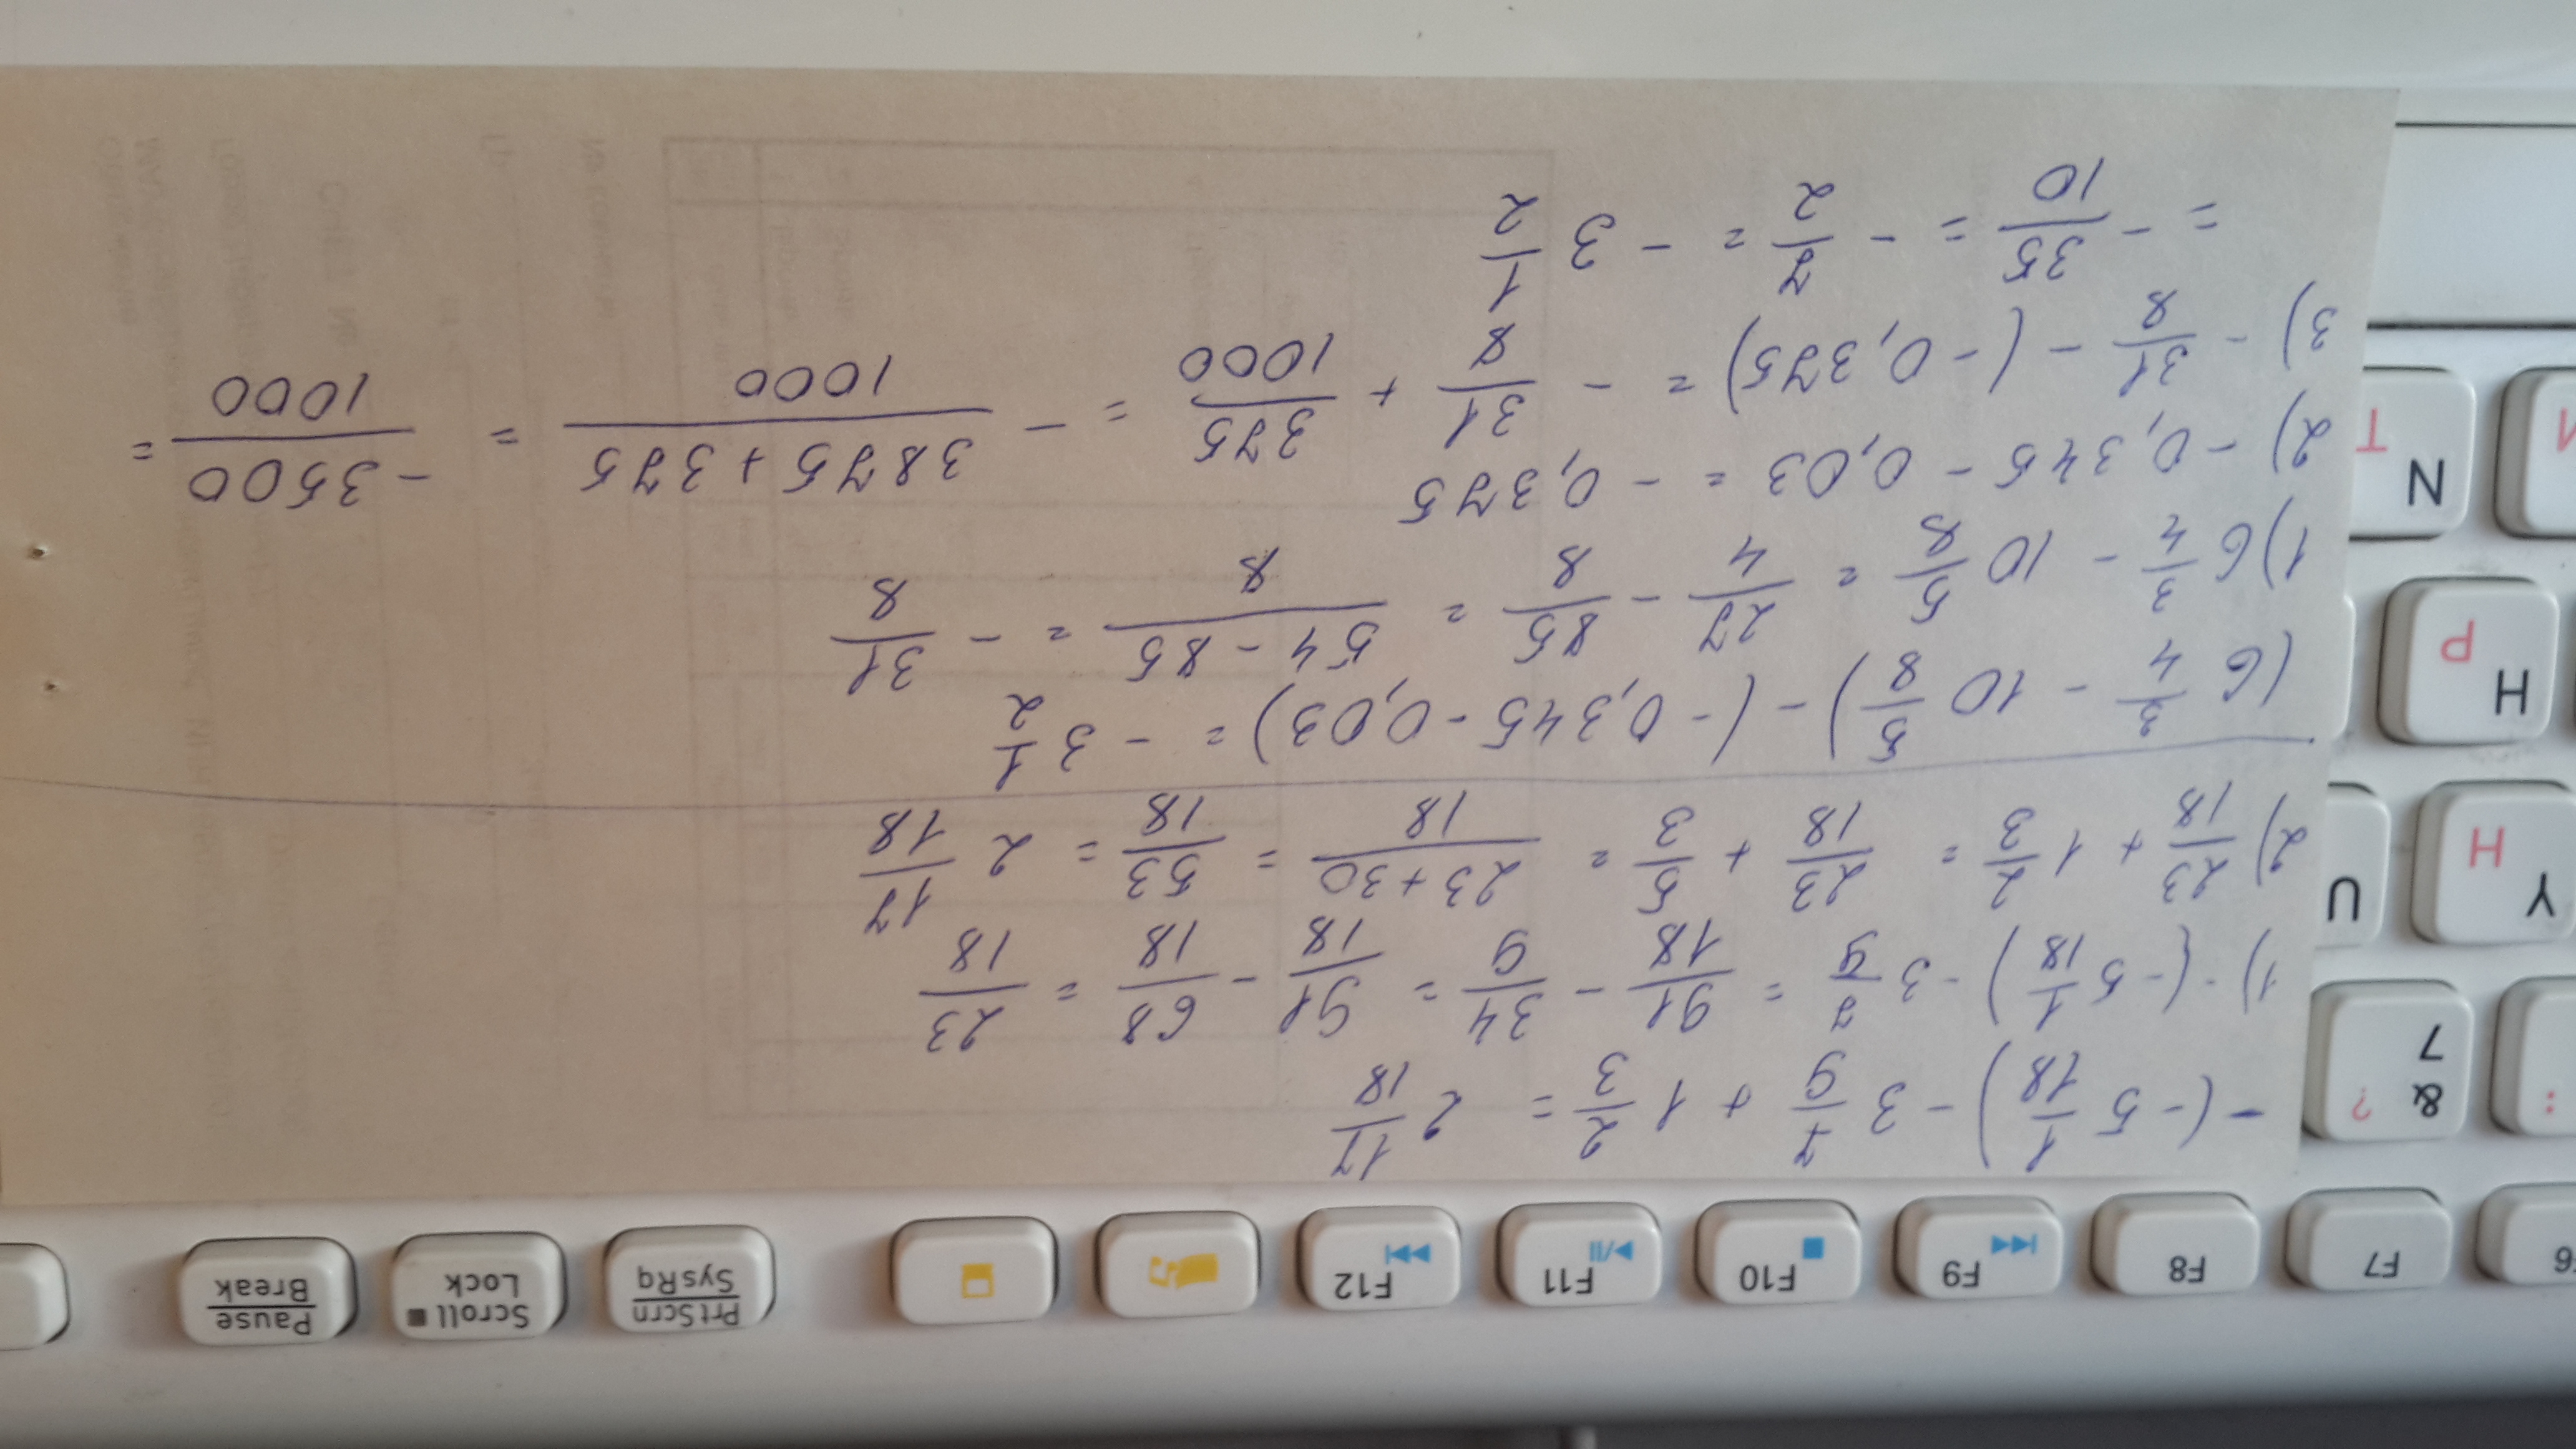 - (-5 1/18) - 3 7/9 + 1 2/3 = 2 17/18
1) -(-5 1/18) - 3 7/9 = 91/18 - 34/9 = 91/18 - 68/18 = 23/18
2) 23/18 + 1 2/3 = 23/18 + 5/3 = 23+30/18 = 53/18 = 2 17/18
(6 3/4 - 10 5/8) - (-0,345 - 0,03) = -3 1/2
1) 6 3/4 - 10 5/8 = 27/4 - 85/8 = 54-85/8 = -31/8
2) -0,345 - 0,03 = -0,375
3) -31/8 - (-0,375) = -31/8 + 375/1000 = -3875+375/1000 = -3500/1000 =
= -35/10 = -7/2 = -3 1/2
F6
F7
F8
F9
F10
F11
F12
PrtScrn
SysRq
Scroll
Lock
Pause
Break
& ?
7
:
Y
Н
U
H
Р
N
Т
И